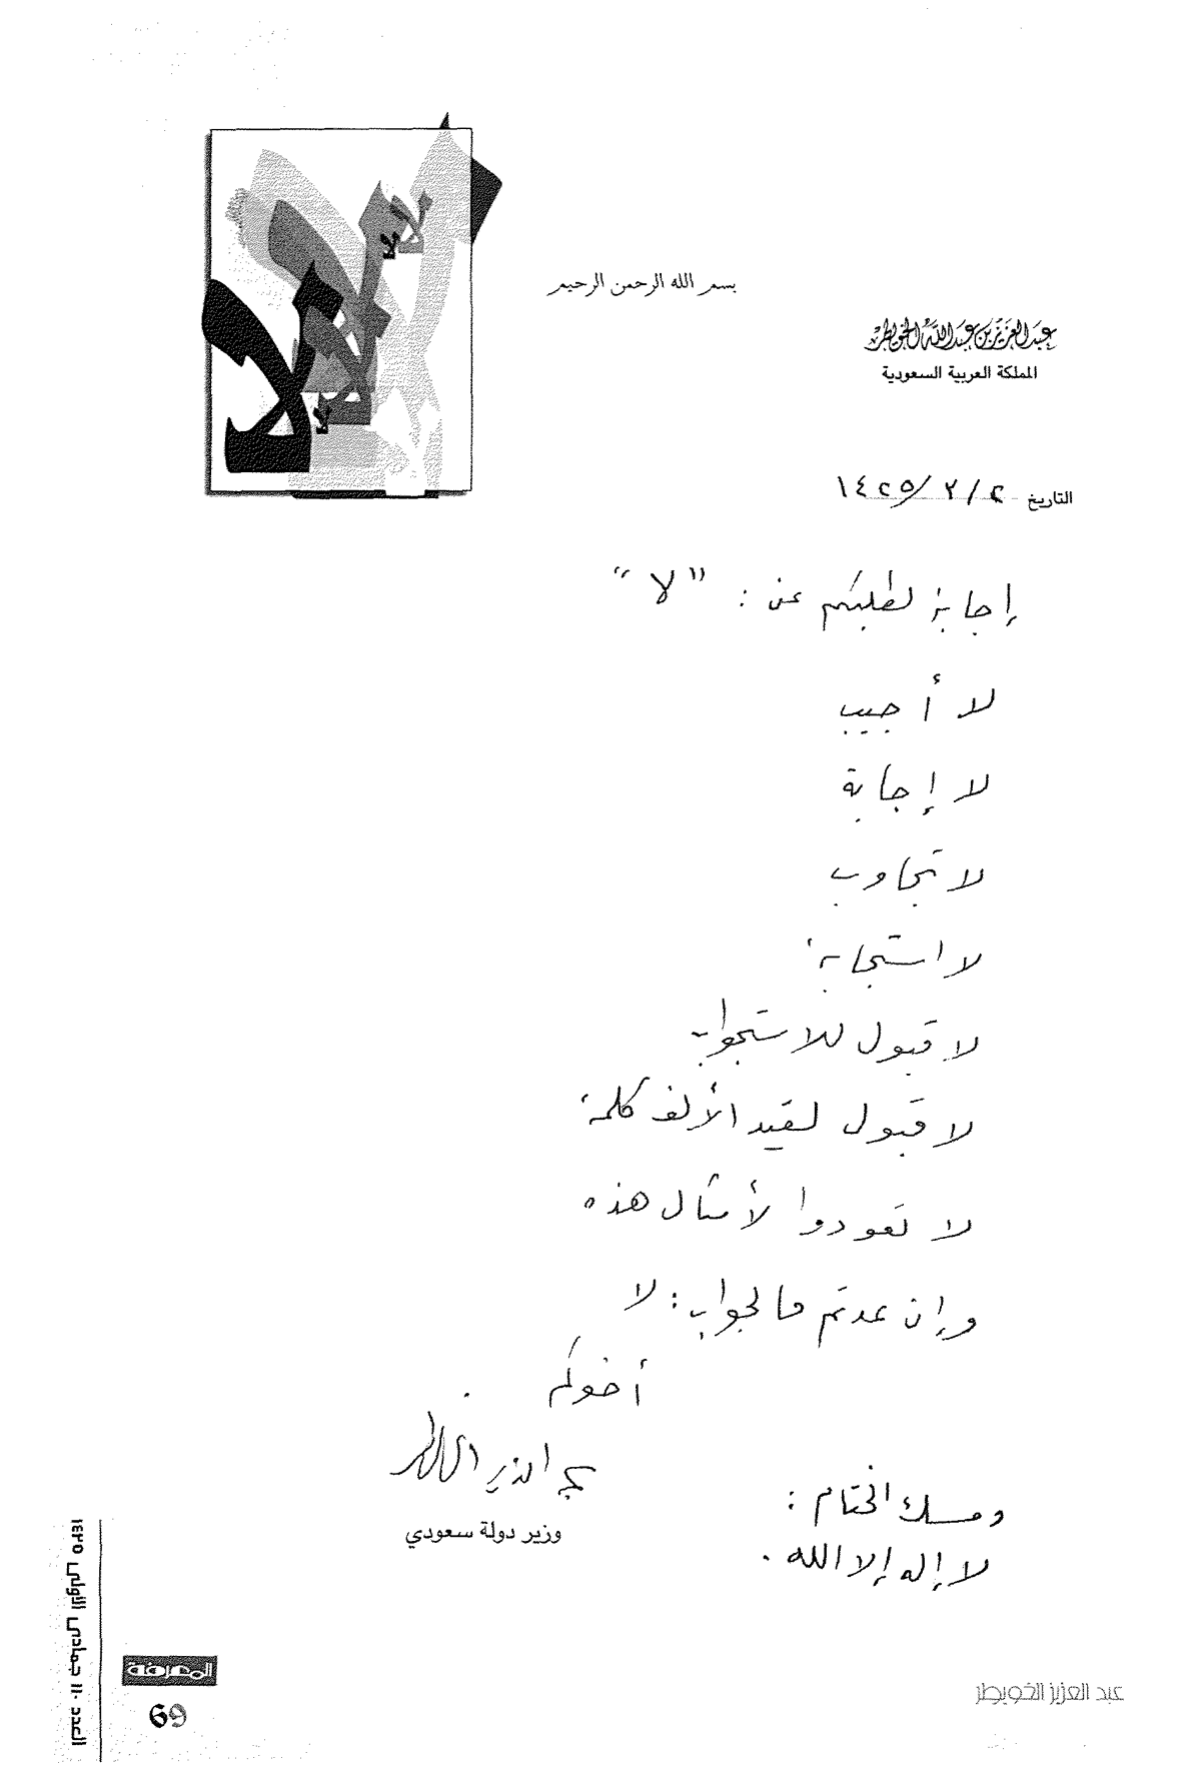 بسم الله الرحمن الرحيم
عبد العزيز بن عبد الله الخويطر
المملكة العربية السعودية
التاريخ ٢/٢/١٤٢٥
إجابة لطلبكم عن : "لا"
لا أجيب
لا إجابة
لا تجاوب
لا استجابة
لا قبول للاستجواب
لا قبول لقيد الألف كلمة
لا تعودوا لأمثال هذه
وإن عدتم فالجواب : لا
أخوكم
عبد العزيز الخويطر
وزير دولة سعودي
ومسك الختام :
لا إله إلا الله .
العدد ١١٠ جمادى الأولى ١٤٢٥
المعرفة
69
عبد العزيز الخويطر